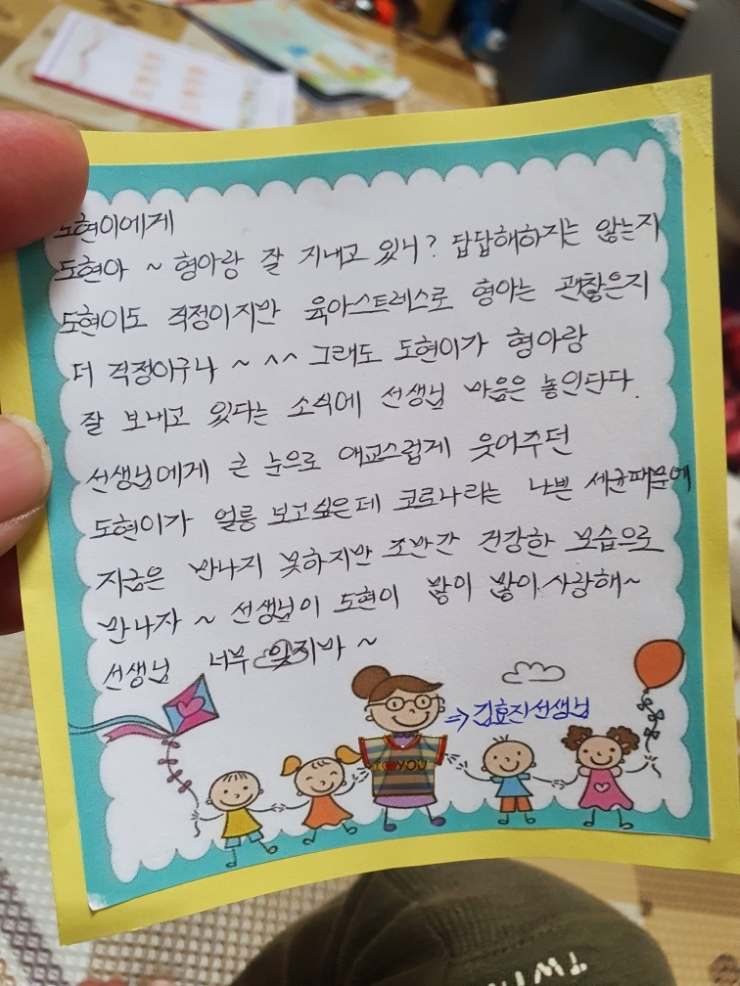 도현이에게
도현아 ~ 형아랑 잘 지내고 있니? 답답해하지는 않는지
도현이도 걱정이지만 육아스트레스로 형아는 괜찮은지
더 걱정이구나 ~ ^^ 그래도 도현이가 형아랑
잘 보내고 있다는 소식에 선생님 마음은 놓인단다.
선생님에게 큰 눈으로 애교스럽게 웃어주던
도현이가 얼릉 보고싶은데 코로나라는 나쁜 세균때문에
지금은 만나지 못하지만 조만간 건강한 모습으로
만나자 ~ 선생님이 도현이 많이 많이 사랑해~
선생님 너무 잊지마 ~
⇒ 김효진선생님
I ♥ YOU
TWIN